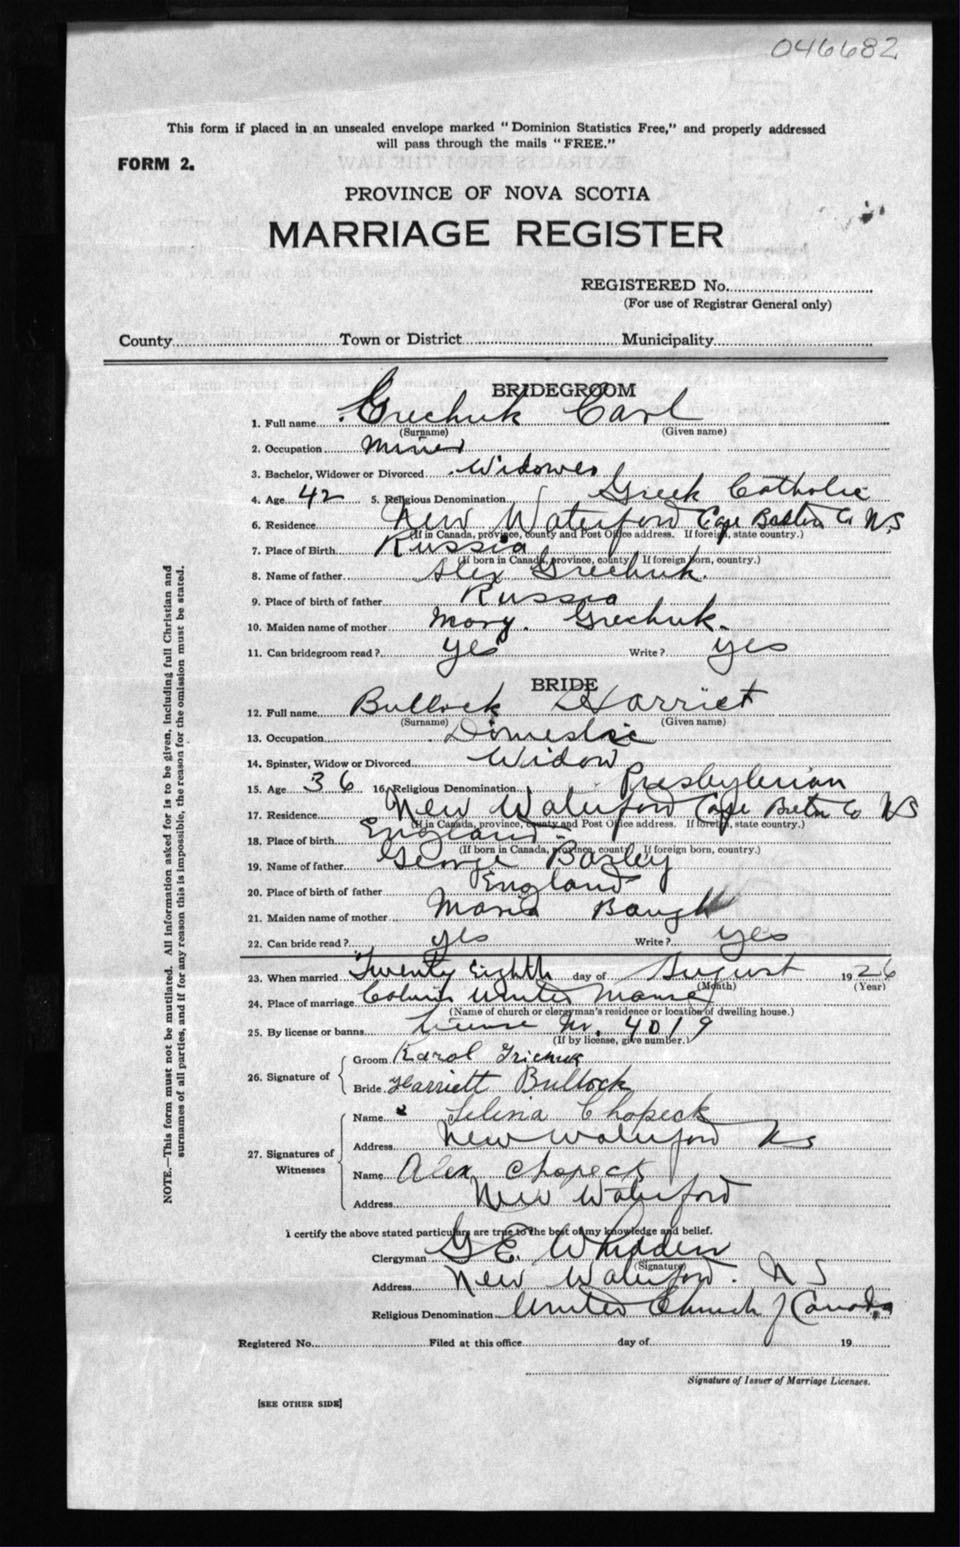 046682
This form if placed in an unsealed envelope marked "Dominion Statistics Free," and properly addressed
will pass through the mails "FREE."
FORM 2.
PROVINCE OF NOVA SCOTIA
MARRIAGE REGISTER
REGISTERED No.
(For use of Registrar General only)
County Town or District Municipality
BRIDEGROOM
1. Full name Grechuk Carl
(Surname) (Given name)
2. Occupation Miner
3. Bachelor, Widower or Divorced Widower
4. Age 42 5. Religious Denomination Greek Catholic
6. Residence New Waterford Cape Breton Co N.S
(If in Canada, province, county and Post Office address. If foreign, state country.)
7. Place of Birth Russia
(If born in Canada, province, county. If foreign born, country.)
8. Name of father Alex Grechuk.
9. Place of birth of father Russia
10. Maiden name of mother Mary. Grechuk.
11. Can bridegroom read? yes Write? yes
BRIDE
12. Full name Bullock Harriet
(Surname) (Given name)
13. Occupation Domestic
14. Spinster, Widow or Divorced Widow
15. Age 36 16. Religious Denomination Presbyterian
17. Residence New Waterford Cape Breton Co NS
(If in Canada, province, county and Post Office address. If foreign, state country.)
18. Place of birth England
(If born in Canada, province, county. If foreign born, country.)
19. Name of father George Baxley
20. Place of birth of father England
21. Maiden name of mother Maria Baugh
22. Can bride read? yes Write? yes
23. When married Twenty Eighth day of August 1926
(Month) (Year)
24. Place of marriage United Manse
(Name of church or clergyman's residence or location of dwelling house.)
25. By license or banns License No. 4019
(If by license, give number.)
26. Signature of
Groom Karol Grichuk
Bride Harriett Bullock
27. Signatures of Witnesses
Name Selina Chopeck
Address New Waterford NS
Name Alex Chopeck
Address New Waterford
I certify the above stated particulars are true to the best of my knowledge and belief.
Clergyman G E. Whidden
(Signature)
Address New Waterford. N S
Religious Denomination United Church of Canada
Registered No. Filed at this office day of 19
Signature of Issuer of Marriage Licenses.
[SEE OTHER SIDE]
NOTE.—This form must not be mutilated. All information asked for is to be given, including full Christian and
surnames of all parties, and if for any reason this is impossible, the reason for the omission must be stated.